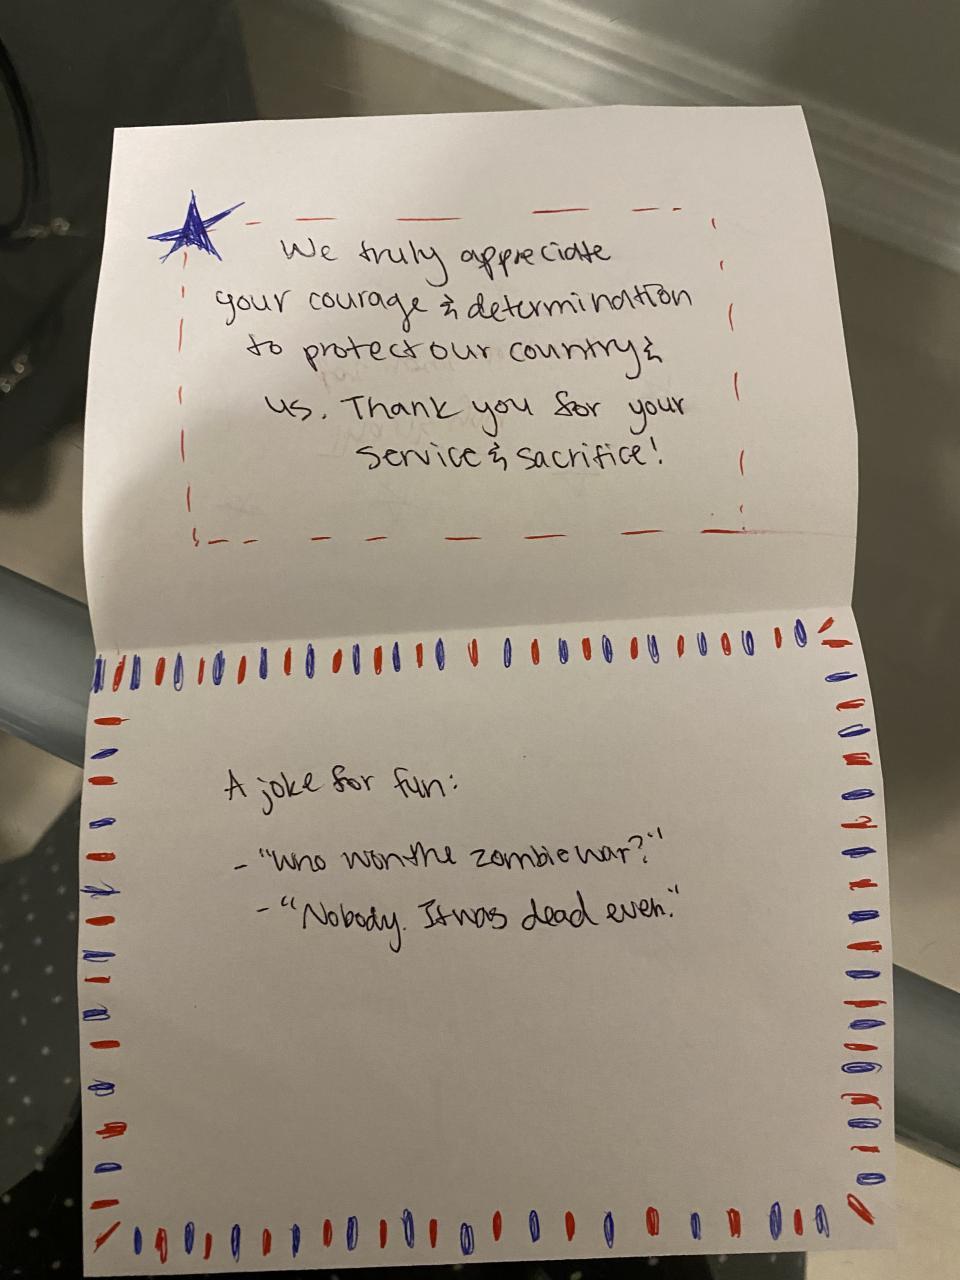 We truly appreciate
your courage & determination
to protect our country &
us. Thank you for your
service & sacrifice!
A joke for fun:
- "Who won the zombie war?"
- "Nobody. It was dead even."